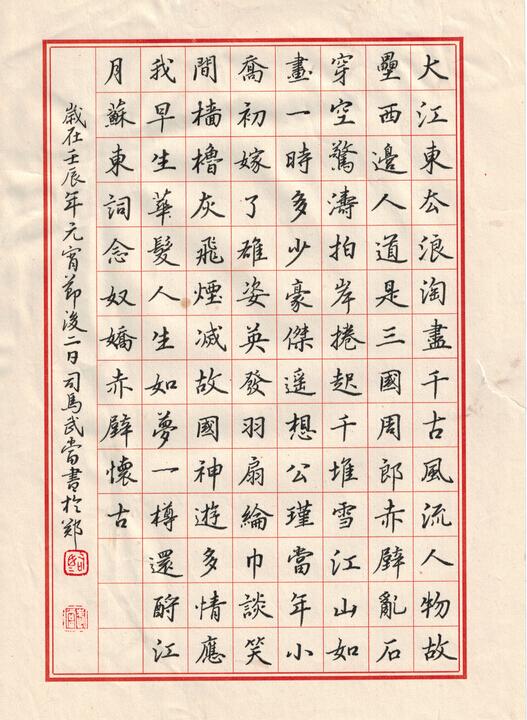 大江東去浪淘盡千古風流人物故
壘西邊人道是三國周郎赤壁亂石
穿空驚濤拍岸捲起千堆雪江山如
畫一時多少豪傑遥想公瑾當年小
喬初嫁了雄姿英發羽扇綸巾談笑
間檣櫓灰飛煙滅故國神遊多情應
我早生華髮人生如夢一樽還酹江
月蘇東詞念奴嬌赤壁懷古
歲在壬辰年元宵節後二日司馬武當書於鄭